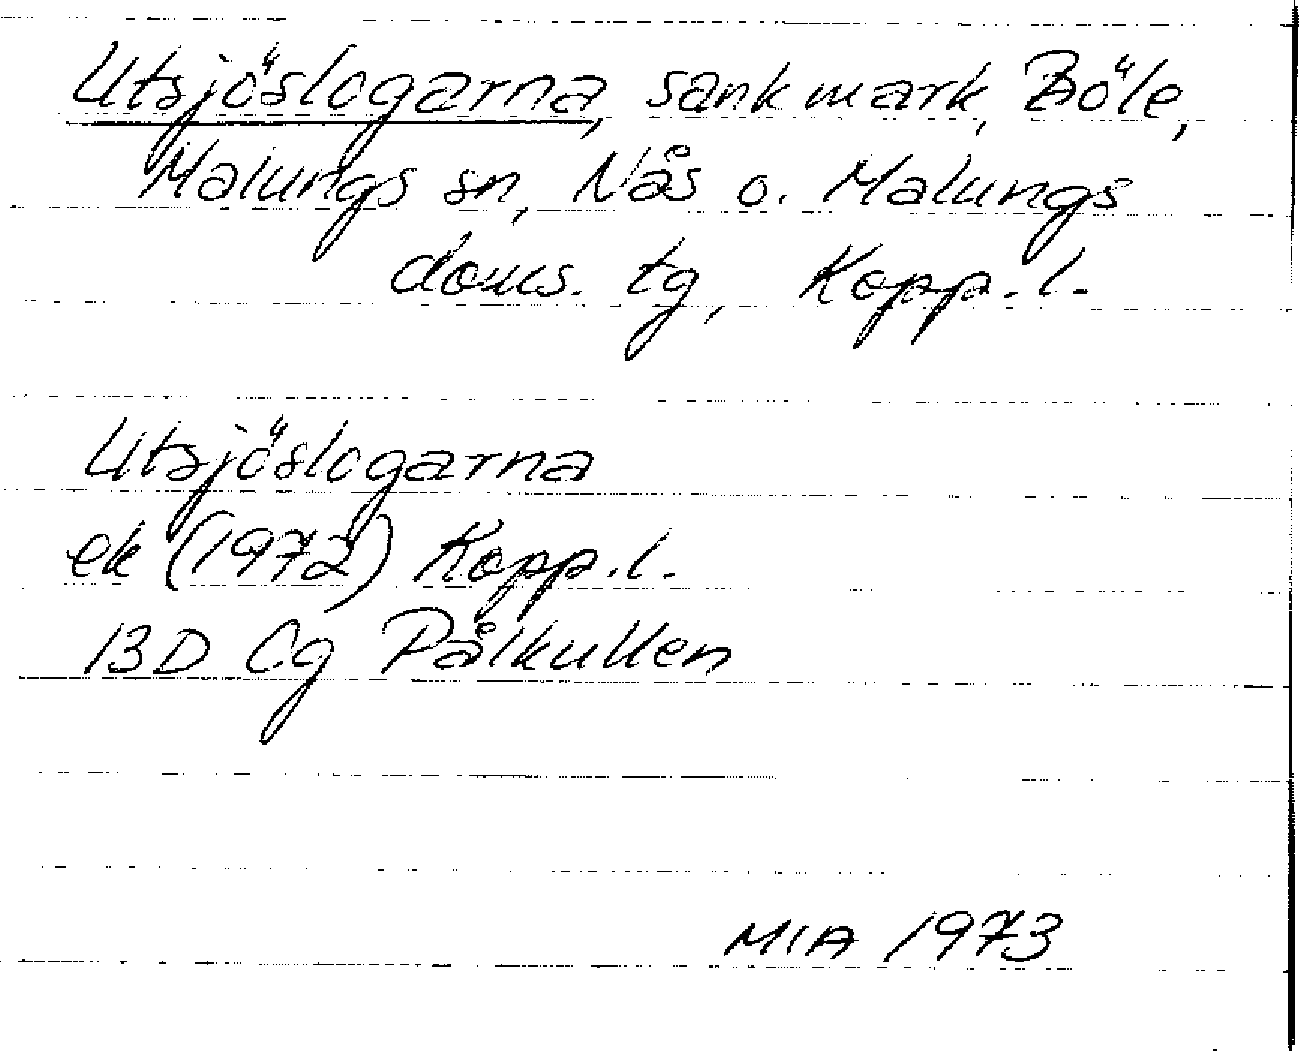 Utsjöslogarna, sankmark, Böle,
Malungs sn, Nås o. Malungs
doms. tg, Kopp. l.
Utsjöslogarna
ek (1972) Kopp. l.
13D Cg Pålkullen
MIA 1973